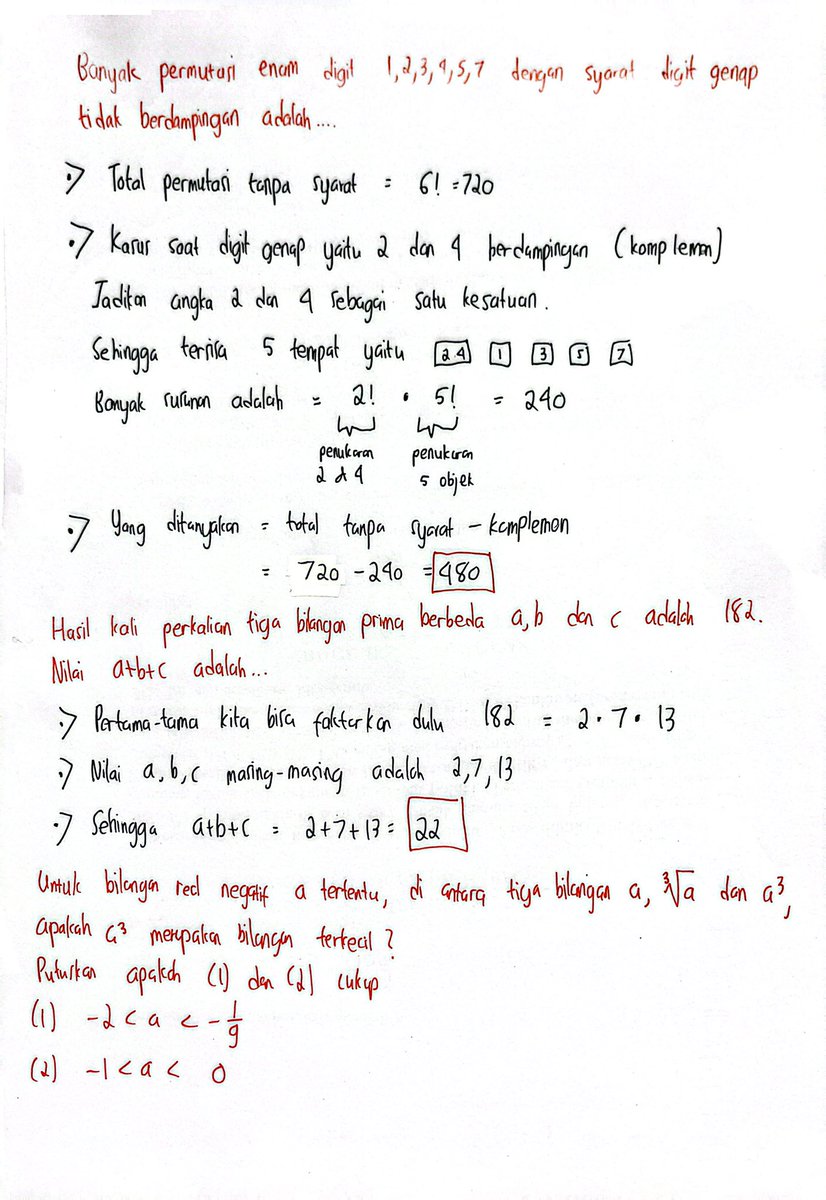 Banyak permutasi enam digit 1,2,3,4,5,7 dengan syarat digit genap
tidak berdampingan adalah....
•> Total permutasi tanpa syarat = 6! = 720
•> Kasus saat digit genap yaitu 2 dan 4 berdampingan (komplemen)
Jadikan angka 2 dan 4 sebagai satu kesatuan.
Sehingga tersisa 5 tempat yaitu 24 1 3 5 7
Banyak susunan adalah = 2! • 5! = 240
penukaran penukaran
2 & 4 5 objek
•> Yang ditanyakan = total tanpa syarat - komplemen
= 720 - 240 = 480
Hasil kali perkalian tiga bilangan prima berbeda a, b dan c adalah 182.
Nilai a+b+c adalah...
•> Pertama-tama kita bisa faktorkan dulu 182 = 2 • 7 • 13
•> Nilai a, b, c masing-masing adalah 2, 7, 13
•> Sehingga a+b+c = 2+7+13 = 22
Untuk bilangan real negatif a tertentu, di antara tiga bilangan a, ∛a dan a³,
apakah a³ merupakan bilangan terkecil?
Putuskan apakah (1) dan (2) cukup
(1) -2 < a < -1/9
(2) -1 < a < 0